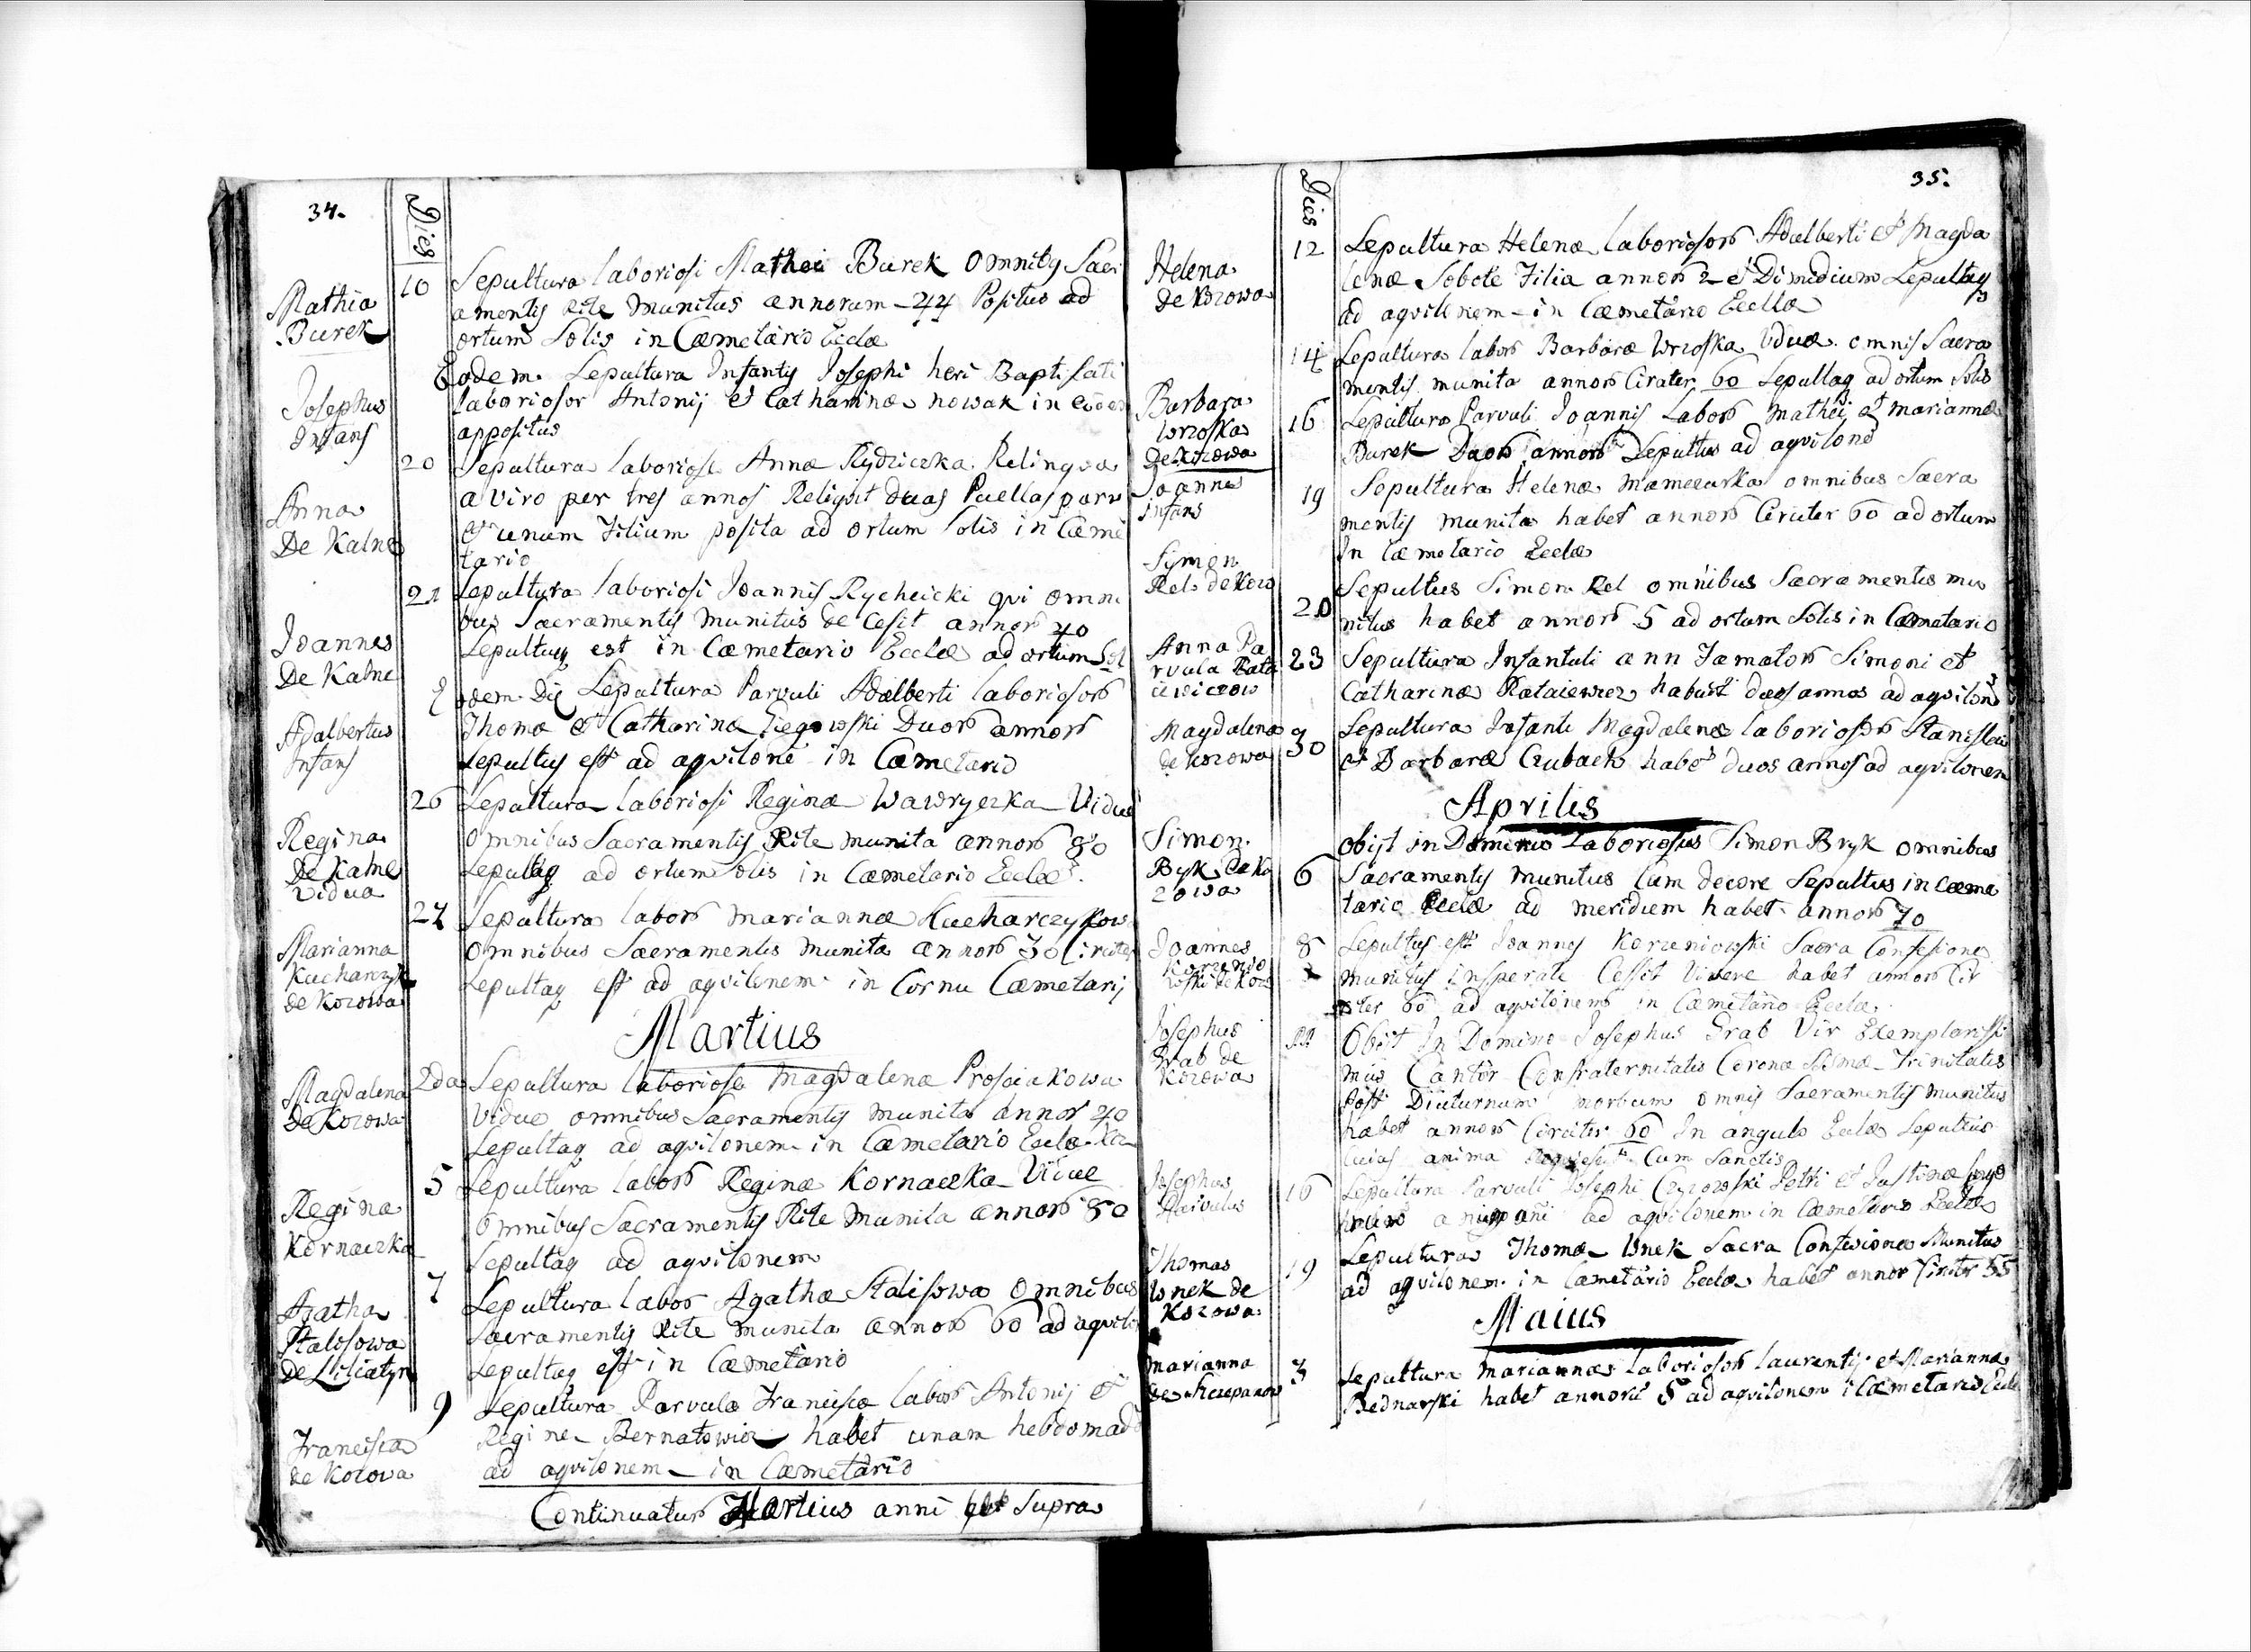 34.
Dies
Mathia
Burek
10
Sepultura laboriosi Mathei Burek Omnibq Sacr
amentis Rite Munitus annorum 44 Positus ad
ortum Solis in Cæmetario Ecclæ
Josephus
Infans
Eodem. Sepultura Infantis Josephi heri Baptisati
laboriosor Antonij et Catharinæ nowak in
appositus
Anna
De Kalne
20
Sepultura laboriosæ Annæ Rydziczka Relinqva
a viro per tres annos Reliqvit duas Puellas parv
et unum Filium posita ad ortum Solis in Cæme
tario
Joannes
De Kalne
21
Sepultura laboriosi Joannis Rycheicki qvi omni
bus Sacramentis Munitus de Cesit annor 40
Sepultuq est in Cæmetario Ecclæ ad ortum Sol
Adalbertus
Infans
Eodem Die Sepultura Parvuli Adalberti laboriosor
Thomæ et Catharinæ Duor annor
Sepultus est ad aqvilone in Cæmetario
Regina
De Kalne
Vidua
26
Sepultura laboriosi Reginæ Wawryczka Vidue
Omnibus Sacramentis Rite munita annor 80
Sepultaq ad ortum Solis in Cæmetario Ecclæ.
Marianna
Kucharczyk
de Kozowa
27
Sepultura labor mariannæ Kucharczykow
Omnibus Sacramentis munita annor 30 Circiter
Sepultaq est ad aqvilonem in Cornu Cæmetarij
Martius
Magdalena
De Kozowa
2da
Sepultura laboriosæ Magdalena Prosciakowa
Vidue omnibus Sacramentis munita annor 40
Sepultaq ad aqvilonem in Cæmetario Ecclæ
Regina
Kornaczka
5
Sepultura labor Reginæ Kornaczka Vidue
Omnibus Sacramentis Rite munita annor 80
Sepultaq ad aqvilonem
Agatha
Stalisowa
De Liliatyn
7
Sepultura labor Agathæ Stalisowa omnibus
Sacramentis Rite munita annor 60 ad aqvilo
Sepultaq est in Cæmetario
Francisca
de Kozowa
9
Sepultura Parvulæ Franciscæ labor Antonij et
Regine Bernatowicz habet unam hebdomad
ad aqvilonem in Cæmetario
Continuatur Martius anni Supra
35.
Dies
Helena
de Kozowa
12
Sepultura Helenæ laboriosor Adalberti et Magda
lenæ Sobote Filia annor 2 et Dimidium Sepultaq
ad aqvilonem in Cæmetario Ecclæ
Barbara
Wrzoska
De Kozowa
14
Sepultura labor Barbaræ Wrzoska Viduæ omnis Sacra
mentis munita annor Cirater 60 Sepultaq ad ortum Solis
Joannes
Infans
16
Sepultura Parvuli Joannis Labor Mathei et mariannæ
Burek Duor annor Sepultus ad aqvilone
19
Sepultura Helenæ Mamecurka omnibus Sacra
mentis munita habet annor Cirater 60 ad ortum
In Cæmetario Ecclæ
Symon
Rel de Kozo
20
Sepultus Simon Rel omnibus Sacramentis mu
nitus habet annor 5 ad ortum Solis in Cæmetario
Anna Pa
rvula Rata
iewiczow
23
Sepultura Infantuli ann Famator Simoni et
Catharinæ Rataiewicz habuit duos annos ad aqvilone
Magdalena
de Kozowa
30
Sepultura Infanti Magdalenæ laboriosor Stanislai
et Barbaræ Czubach habet duos annos ad aqvilonem
Aprilis
Simon
Byk de Ko
zowa
6
obijt in Domino Laboriosus Simon Bryk omnibus
Sacramentis munitus Cum decore Sepultus in Cæme
tario Ecclæ ad meridiem habet annor 70
Joannes
Korzenio
wski de Kozo
8
Sepultus est Joannes Korzeniowski Sacra Confesione
munitus insperate Cessit Vivere habet annor Cir
ater 60 ad aqvilonem in Cæmetario Ecclæ
Josephus
Grab de
Kozowa
11
Obiit In Domino Josephus Grab Vir Exemplarissi
mus Cantor Confraternitatis Coronæ Ssmæ Trinitatis
Post Diuturnum morbum omnis Sacramentis munitus
habet annor Circiter 60 In angulo Ecclæ Sepultus
Cuias anima Reqviescat Cum Sanctis
Josephus
Parvulus
16
Sepultura Parvuli Josephi Czyzowski Petri et Justinæ
ad aqvilonem in Cæmetario Ecclæ
Thomas
Wnek de
Kozowa
19
Sepultura Thomæ Wnek Sacra Confesione Munitus
ad aqvilonem in Cæmetario Ecclæ habet annor Cirater 55
Maius
Marianna
de Szczepanow
3
Sepultura mariannæ laboriosor laurentij et Marianna
Bednarski habet annorū 5 ad aqvilonem i Cæmetario Eccle